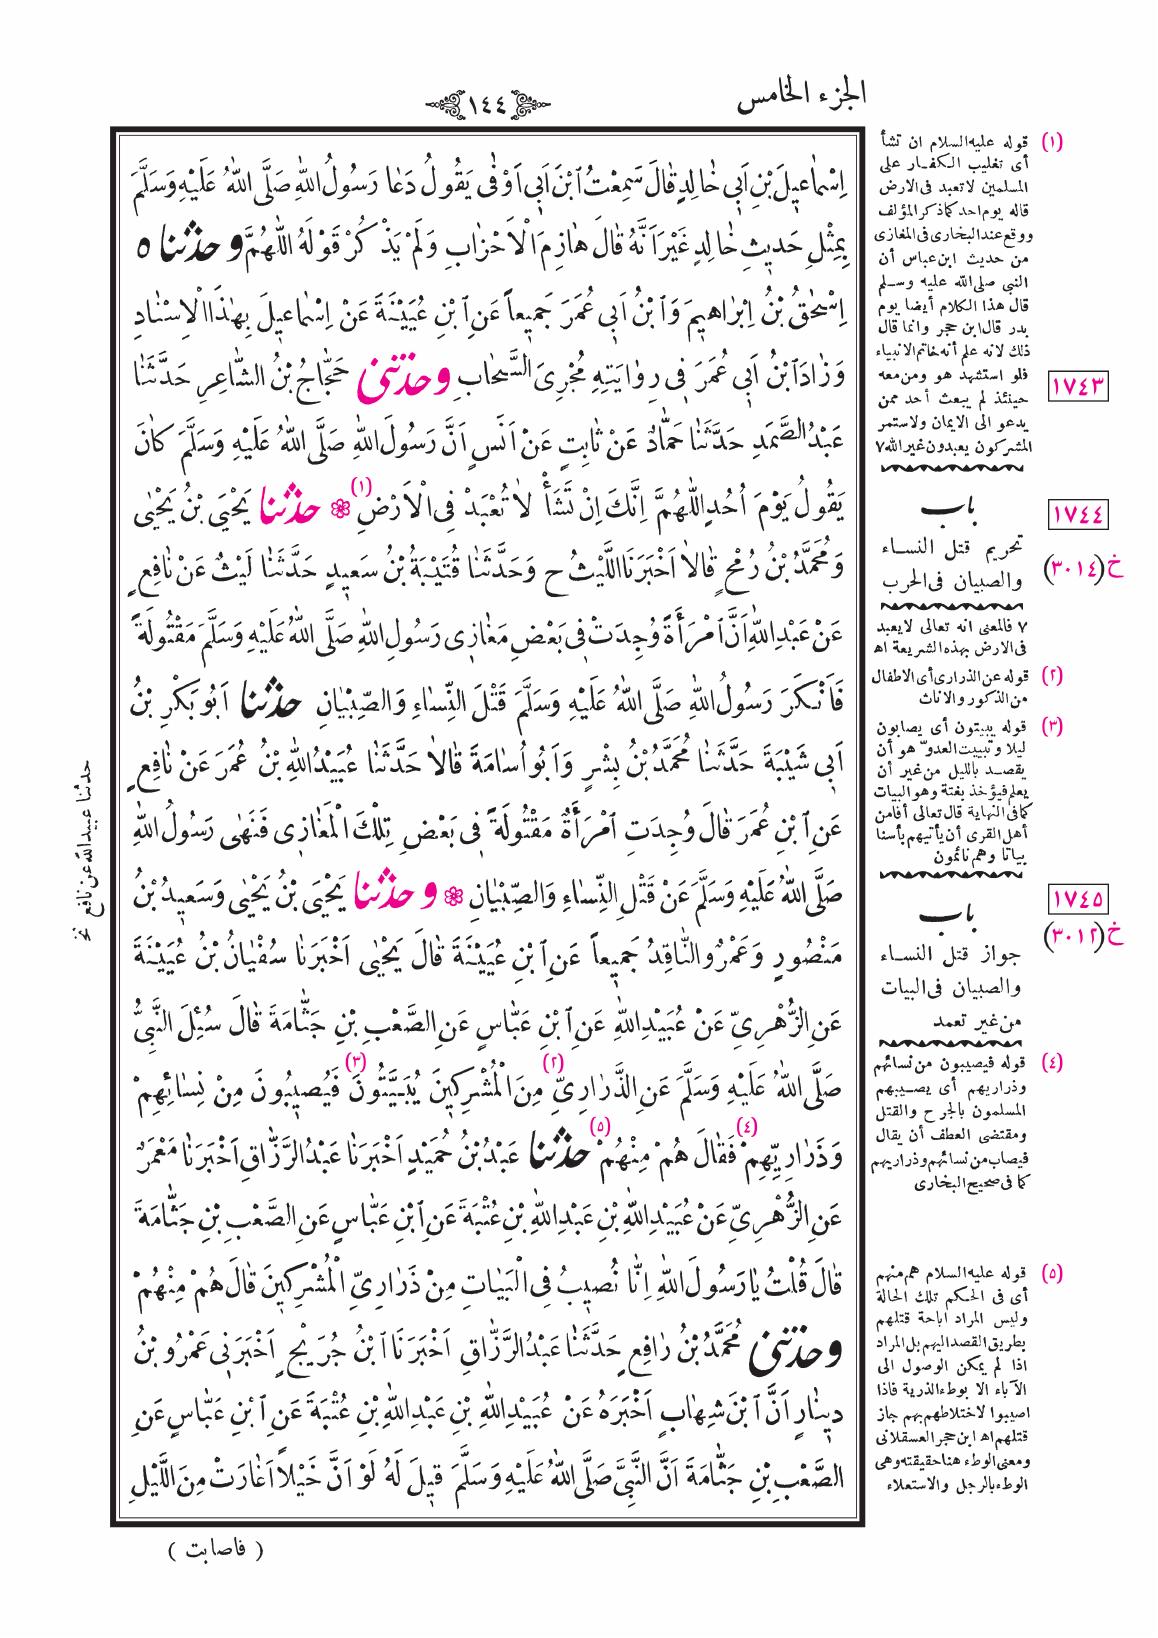 الجزء الخامس
١٤٤
اِسْمَاعِيلَ بْنِ اَبِى خَالِدٍ قَالَ سَمِعْتُ ابْنَ اَبِى اَوْفٰى يَقُولُ دَعَا رَسُولُ اللهِ صَلَّى اللهُ عَلَيْهِ وَسَلَّمَ
بِمِثْلِ حَدِيثِ خَالِدٍ غَيْرَ اَنَّهُ قَالَ هَازِمَ الْاَحْزَابِ وَلَمْ يَذْكُرْ قَوْلَهُ اللّٰهُمَّ وحدثنا ٥
اِسْحٰقُ بْنُ اِبْرَاهِيمَ وَابْنُ اَبِى عُمَرَ جَمِيعاً عَنِ ابْنِ عُيَيْنَةَ عَنْ اِسْمَاعِيلَ بِهٰذَا الْاِسْنَادِ
وَزَادَ ابْنُ اَبِى عُمَرَ فِى رِوَايَتِهِ مُجْرِىَ السَّحَابِ وحدثنى حَجَّاجُ بْنُ الشَّاعِرِ حَدَّثَنَا
عَبْدُ الصَّمَدِ حَدَّثَنَا حَمَّادٌ عَنْ ثَابِتٍ عَنْ اَنَسٍ اَنَّ رَسُولَ اللهِ صَلَّى اللهُ عَلَيْهِ وَسَلَّمَ كَانَ
يَقُولُ يَوْمَ اُحُدٍ اللّٰهُمَّ اِنَّكَ اِنْ تَشَأْ لَا تُعْبَدْ فِى الْاَرْضِ (١) حدثنا يَحْيَى بْنُ يَحْيٰى
وَمُحَمَّدُ بْنُ رُمْحٍ قَالَا اَخْبَرَنَا اللَّيْثُ ح وَحَدَّثَنَا قُتَيْبَةُ بْنُ سَعِيدٍ حَدَّثَنَا لَيْثٌ عَنْ نَافِعٍ
عَنْ عَبْدِ اللهِ اَنَّ امْرَأَةً وُجِدَتْ فِى بَعْضِ مَغَازِى رَسُولِ اللهِ صَلَّى اللهُ عَلَيْهِ وَسَلَّمَ مَقْتُولَةً
فَاَنْكَرَ رَسُولُ اللهِ صَلَّى اللهُ عَلَيْهِ وَسَلَّمَ قَتْلَ النِّسَاءِ وَالصِّبْيَانِ حدثنا اَبُو بَكْرِ بْنُ
اَبِى شَيْبَةَ حَدَّثَنَا مُحَمَّدُ بْنُ بِشْرٍ وَاَبُو اُسَامَةَ قَالَا حَدَّثَنَا عُبَيْدُ اللهِ بْنُ عُمَرَ عَنْ نَافِعٍ
عَنِ ابْنِ عُمَرَ قَالَ وُجِدَتِ امْرَأَةٌ مَقْتُولَةً فِى بَعْضِ تِلْكَ الْمَغَازِى فَنَهٰى رَسُولُ اللهِ
صَلَّى اللهُ عَلَيْهِ وَسَلَّمَ عَنْ قَتْلِ النِّسَاءِ وَالصِّبْيَانِ وحدثنا يَحْيَى بْنُ يَحْيٰى وَسَعِيدُ بْنُ
مَنْصُورٍ وَعَمْرٌو النَّاقِدُ جَمِيعاً عَنِ ابْنِ عُيَيْنَةَ قَالَ يَحْيٰى اَخْبَرَنَا سُفْيَانُ بْنُ عُيَيْنَةَ
عَنِ الزُّهْرِىِّ عَنْ عُبَيْدِ اللهِ عَنِ ابْنِ عَبَّاسٍ عَنِ الصَّعْبِ بْنِ جَثَّامَةَ قَالَ سُئِلَ النَّبِىُّ
صَلَّى اللهُ عَلَيْهِ وَسَلَّمَ عَنِ الذَّرَارِىِّ (٢) مِنَ الْمُشْرِكِينَ يُبَيَّتُونَ (٣) فَيُصِيبُونَ مِنْ نِسَائِهِمْ
وَذَرَارِيِّهِمْ (٤) فَقَالَ هُمْ مِنْهُمْ (٥) حدثنا عَبْدُ بْنُ حُمَيْدٍ اَخْبَرَنَا عَبْدُ الرَّزَّاقِ اَخْبَرَنَا مَعْمَرٌ
عَنِ الزُّهْرِىِّ عَنْ عُبَيْدِ اللهِ بْنِ عَبْدِ اللهِ بْنِ عُتْبَةَ عَنِ ابْنِ عَبَّاسٍ عَنِ الصَّعْبِ بْنِ جَثَّامَةَ
قَالَ قُلْتُ يَا رَسُولَ اللهِ اِنَّا نُصِيبُ فِى الْبَيَاتِ مِنْ ذَرَارِىِّ الْمُشْرِكِينَ قَالَ هُمْ مِنْهُمْ
وحدثنى مُحَمَّدُ بْنُ رَافِعٍ حَدَّثَنَا عَبْدُ الرَّزَّاقِ اَخْبَرَنَا ابْنُ جُرَيْجٍ اَخْبَرَنِى عَمْرُو بْنُ
دِينَارٍ اَنَّ ابْنَ شِهَابٍ اَخْبَرَهُ عَنْ عُبَيْدِ اللهِ بْنِ عَبْدِ اللهِ بْنِ عُتْبَةَ عَنِ ابْنِ عَبَّاسٍ عَنِ
الصَّعْبِ بْنِ جَثَّامَةَ اَنَّ النَّبِىَّ صَلَّى اللهُ عَلَيْهِ وَسَلَّمَ قِيلَ لَهُ لَوْ اَنَّ خَيْلاً اَغَارَتْ مِنَ اللَّيْلِ
( فاصابت )
(١) قوله عليه السلام ان تشأ
أى تغليب الكفار على
المسلمين لا تعبد فى الارض
قاله يوم احد كما ذكر المؤلف
ووقع عند البخارى فى المغازى
من حديث ابن عباس أن
النبى صلى الله عليه وسلم
قال هذا الكلام أيضا يوم
بدر قال ابن حجر وانما قال
ذلك لانه علم أنه خاتم الانبياء
فلو استشهد هو ومن معه
حينئذ لم يبعث أحد ممن
يدعو الى الايمان ولاستمر
المشركون يعبدون غير الله ٧
١٧٤٣
باب
تحريم قتل النساء
والصبيان فى الحرب
١٧٤٤
خ (٣٠١٤)
٧ فالمعنى انه تعالى لا يعبد
فى الارض بهذه الشريعة اه
(٢) قوله عن الذرارى أى الاطفال
من الذكور والاناث
(٣) قوله يبيتون أى يصابون
ليلا وتبييت العدوّ هو أن
يقصد بالليل من غير أن
يعلم فيؤخذ بغتة وهو البيات
كما فى النهاية قال تعالى أفامن
أهل القرى أن يأتيهم بأسنا
بياتا وهم نائمون
باب
جواز قتل النساء
والصبيان فى البيات
من غير تعمد
١٧٤٥
خ (٣٠١٢)
(٤) قوله فيصيبون من نسائهم
وذراريهم أى يصيبهم
المسلمون بالجرح والقتل
ومقتضى العطف أن يقال
فيصاب من نسائهم وذراريهم
كما فى صحيح البخارى
(٥) قوله عليه السلام هم منهم
أى فى الحكم تلك الحالة
وليس المراد اباحة قتلهم
بطريق القصد اليهم بل المراد
اذا لم يمكن الوصول الى
الآباء الا بوطء الذرية فاذا
اصيبوا لاختلاطهم بهم جاز
قتلهم اه ابن حجر العسقلانى
ومعنى الوطء هنا حقيقته وهى
الوطء بالرجل والاستعلاء
حدثنا عبيدالله عن نافع نخ